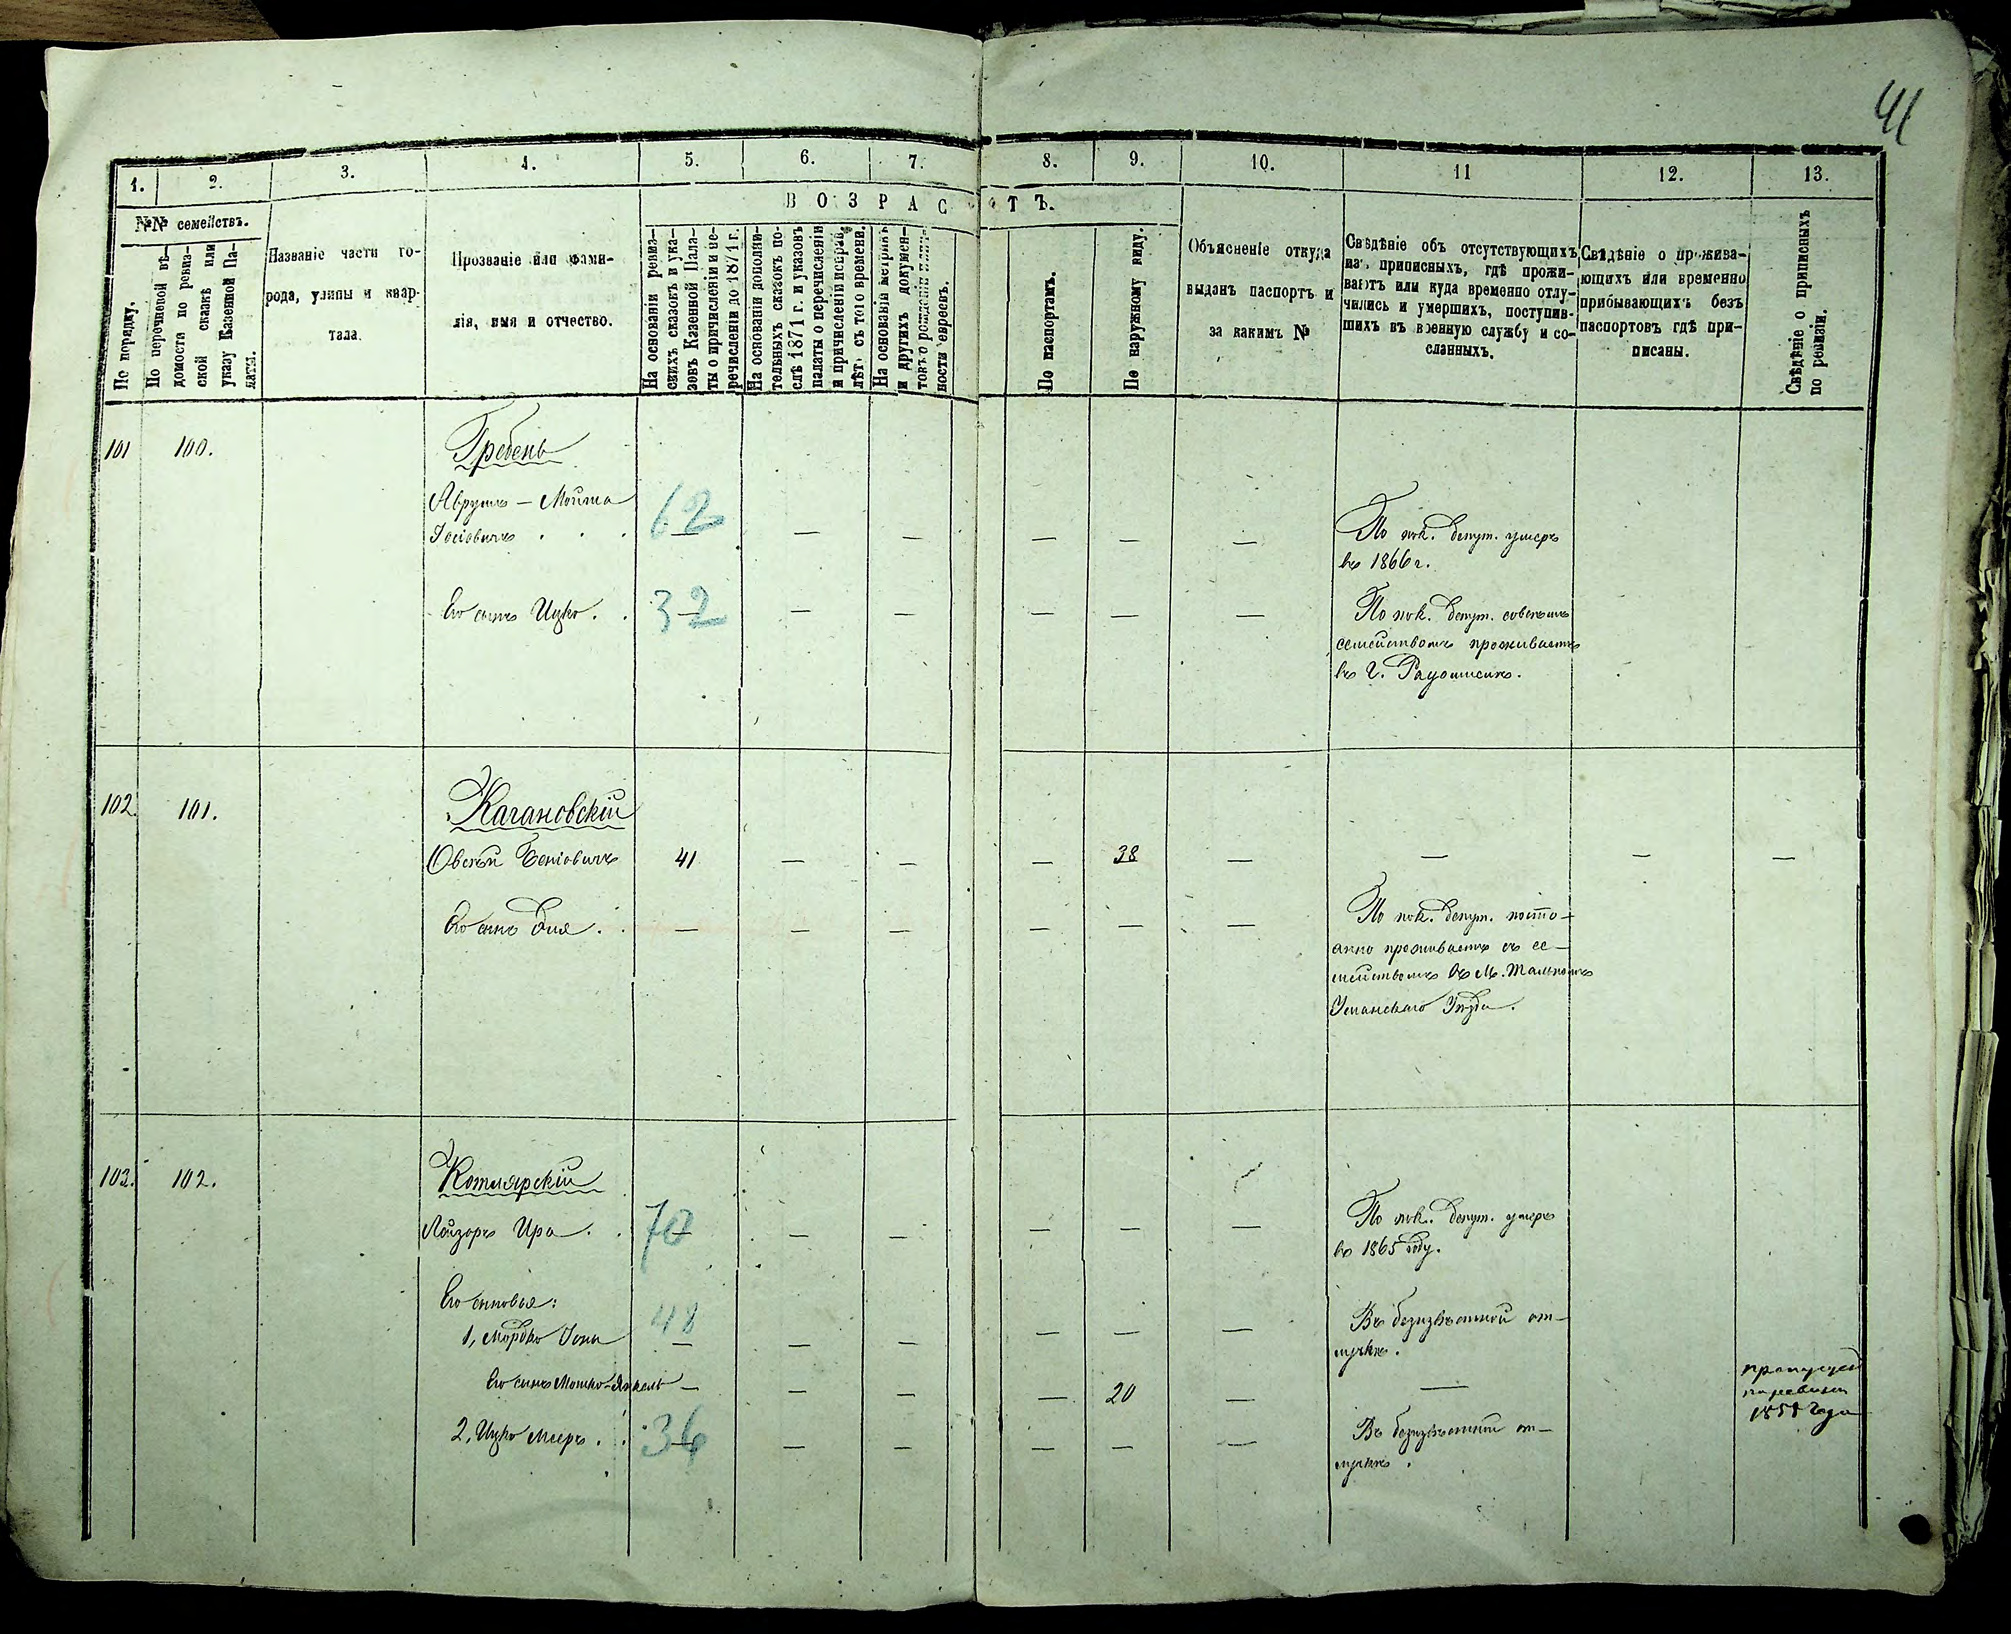 41
1.
2.
3.
4.
5.
6.
7.
8.
9.
10.
11
12.
13.
№№ семействъ.
ВОЗРАСТЪ.
По порядку.
По перечневой вѣ-
домости по ревиз-
ской сказкѣ или
указу Казенной Па-
латы.
Названіе части го-
рода, улицы и квар-
тала.
Прозваніе или фами-
лія, имя и отчество.
На основаніи ревиз-
скихъ сказокъ и ука-
зовъ Казенной Пала-
ты о причисленіи и пе-
речисленіи до 1871 г.
На основаніи дополни-
тельныхъ сказокъ по-
слѣ 1871 г. и указовъ
палаты о перечисленіи
и причисленіи исправ.
лѣтъ съ того времени.
На основаніи метрикъ
и другихъ докумен-
товъ о рожденіи
ности евреевъ.
По паспортамъ.
По наружному виду.
Объясненіе откуда
выданъ паспортъ и
за какимъ №
Свѣдѣніе объ отсутствующихъ
изъ приписныхъ, гдѣ прожи-
ваютъ или куда временно отлу-
чились и умершихъ, поступив-
шихъ въ военную службу и со-
сланныхъ.
Свѣдѣніе о прожива-
ющихъ или временно
прибывающихъ безъ
паспортовъ гдѣ при-
писаны.
Свѣдѣніе о приписныхъ
по ревизіи.
101 100. Гребень
Аврумъ - Мойша
Іосіовичъ . . . 62 — — — — — По пок. депут. умеръ
въ 1866 г.
Его сынъ Ицко . . 32 — — — — — По пок. депут. совсѣмъ
семействомъ проживаетъ
въ г. Радомислѣ.
102. 101. Кагановскій
Овсѣй Беніовичъ 41 — — — 38 — — — —
Его сынъ Эля . . — — — — — — По пок. депут. посто-
янно проживаетъ съ се-
мействомъ въ М. Тальномъ
Уманскаго Уѣзда.
103. 102. Котлярскій
Лейзоръ Ира . . 70 — — — — — По пок. депут. умеръ
въ 1865 году.
Его сыновья:
1, Мордко Іона 48 — — — — — Въ безизвѣстной от-
лучкѣ.
Его сынъ Мошко-Янкель — — — — 20 — — пропущен
по ревизіи
1858 года
2, Ицко Мееръ . . 36 — — — — — Въ безизвѣстной от-
лучкѣ .